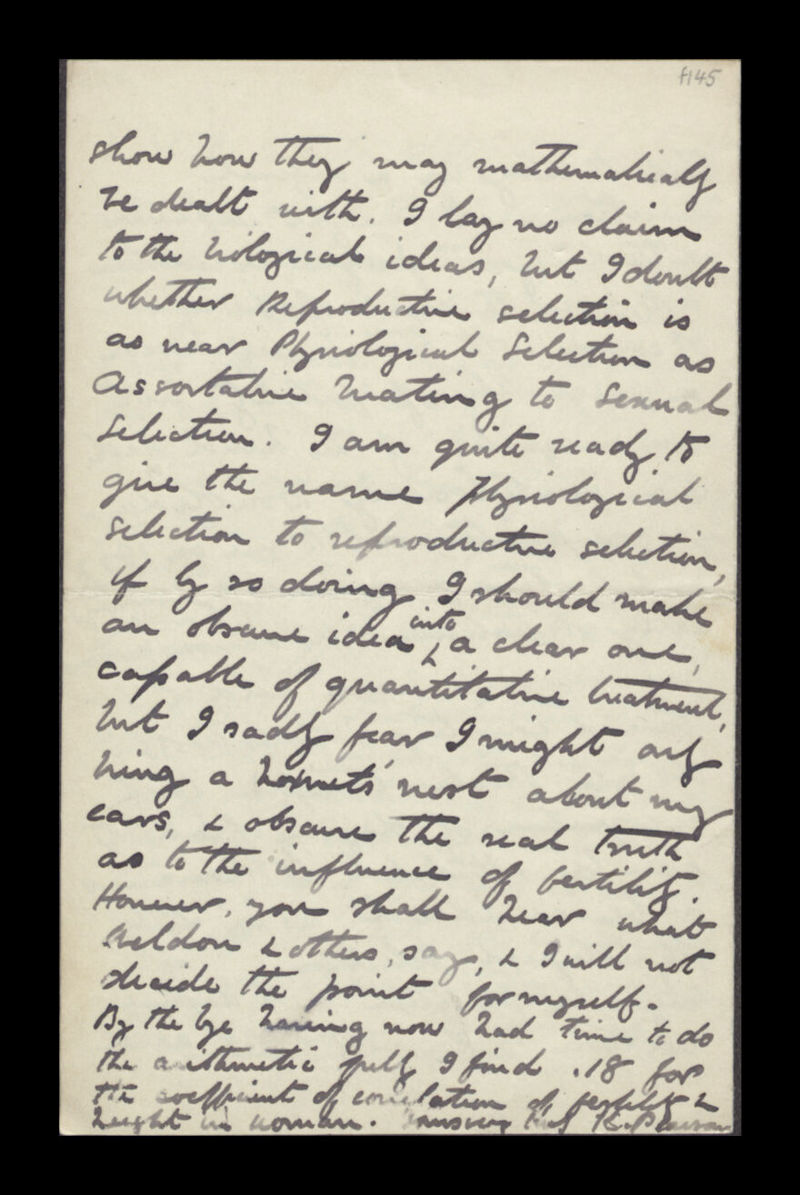 f145
show how they may mathematically
be dealt with. I lay no claim
to the biological ideas, but I doubt
whether Reproductive selection is
as near Physiological Selection as
Assortative Mating to Sexual
Selection. I am quite ready to
give the name physiological
selection to reproductive selection,
if by so doing I should make
an obscure idea into a clear one,
capable of quantitative treatment,
but I sadly fear I might only
bring a hornets' nest about my
ears, & obscure the real truth
as to the influence of fertility.
However, you shall hear what
Weldon & others, say, & I will not
decide the point for myself.
By the bye having now had time to do
the arithmetic fully I find .18 for
the coefficient of correlation of fertility &
height in woman. K. Pearson